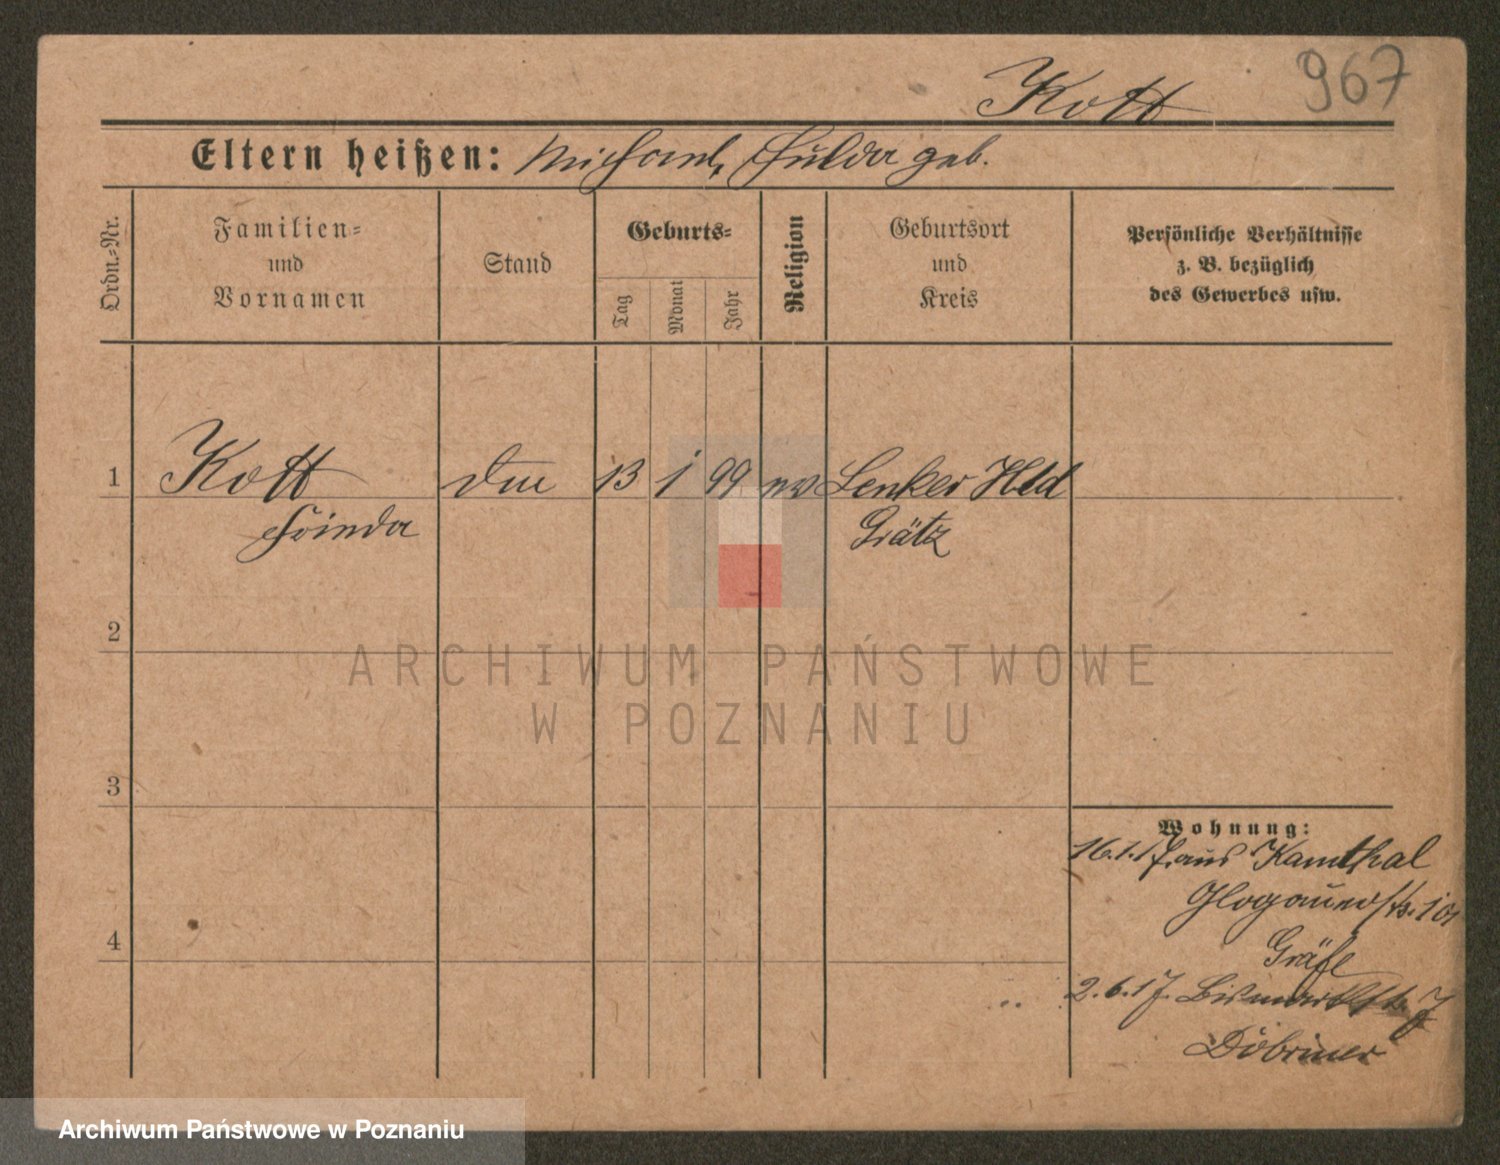 967
Kott
Eltern heißen: Michael, Hulda geb.
Ordn.-Nr.
Familien-
und
Vornamen
Stand
Geburts-
Tag
Monat
Jahr
Religion
Geburtsort
und
Kreis
Persönliche Verhältnisse
z. B. bezüglich
des Gewerbes usw.
1 Kott 13 1 99 ev Lenker Hld
Frieda Grätz
2
3
4
ARCHIWUM PAŃSTWOWE
W POZNANIU
Wohnung:
16.1.17 aus Kamthal
Glogauerstr. 101
Gräfe
2.6.17. Bismarckstr. 7
Döbriner
Archiwum Państwowe w Poznaniu